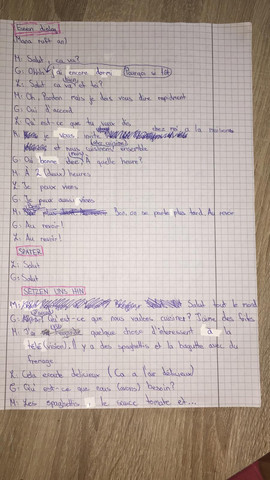 Maria ruft an!
M: Salut, ca va?
G: j'ai encore dormi
Z: Salut ca va? et toi?
M: Oh, Pardon mais je dois vous dire rapidment
G: Oui d'accord
Z: Qu'est-ce que tu
je vous invite chez moi a la maison
et nous cuisinons ensemble
G: Oh bonne idee! À quelle heure?
M: À 2 (deux) heures
Z: Je peux
G: Je peux aussi
M: Bon on se parle plus tard. Au revoir
G: Au revoir!
Z: Au revoir!
SPÄTER
Z: Salut
G: Salut
SETZEN UNS HIN
M: Salut tout le mond
G: Qu'est-ce que nous cuisiner? J'aime des frites
M: J'ai quelque chose d'interessant à la
télé(vision). Il y a des spaghettis et la baguette avec du
fromage
Z: Cela delicieux (Ca a l'air délicieux)
G: Qu'est-ce que nous (avons) besoin?
M: Les spaghettis, le sauce tomate et...